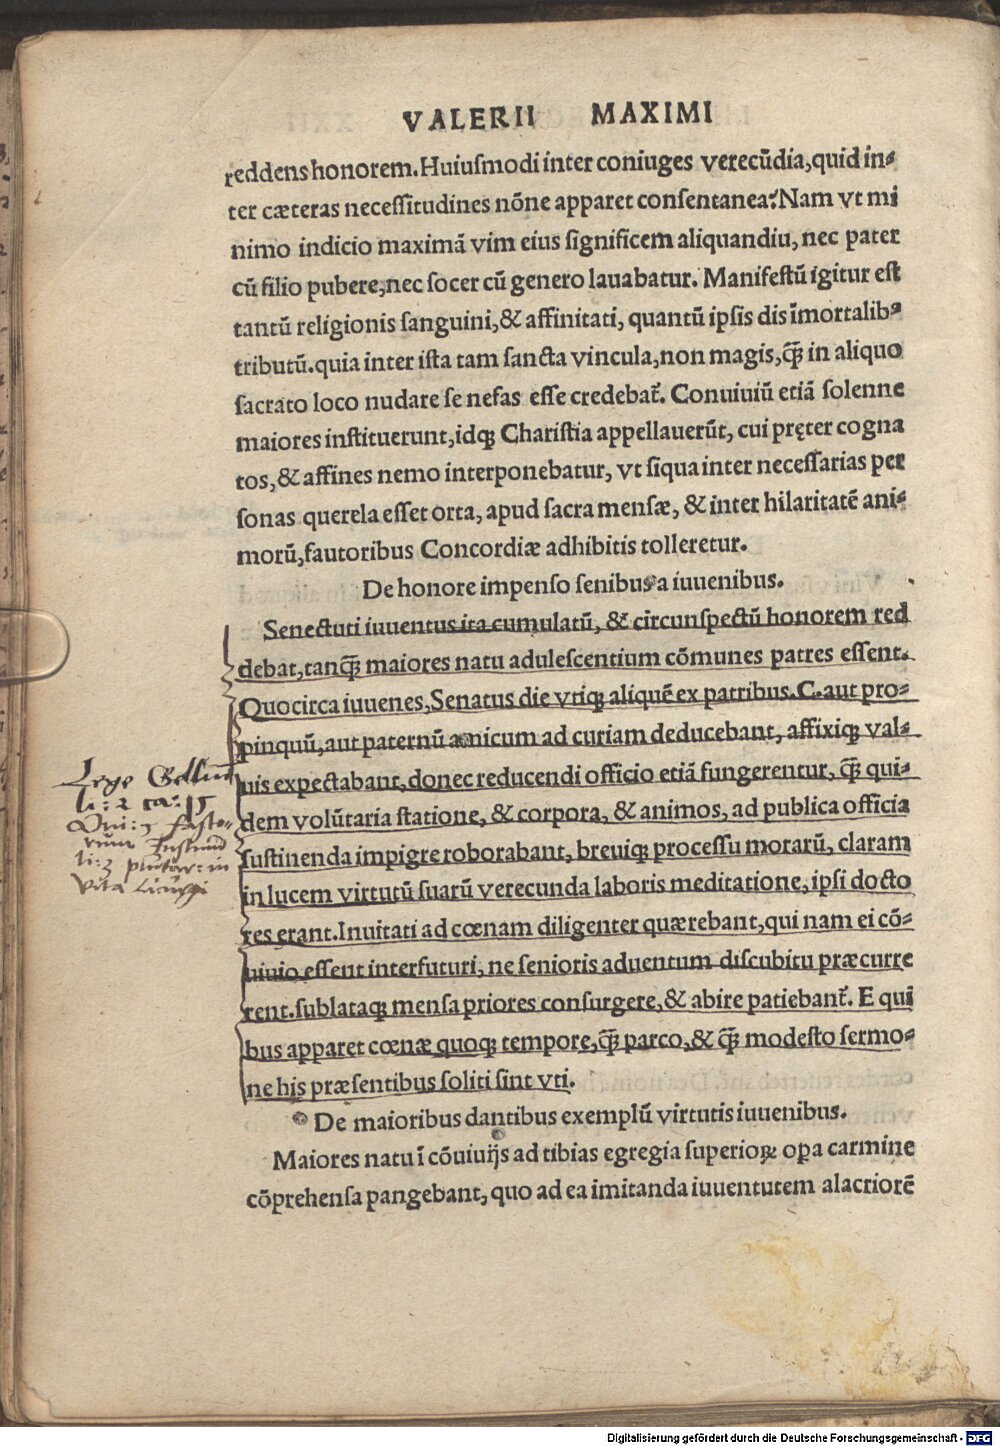 VALERII MAXIMI
reddens honorem. Huiuſmodi inter coniuges verecūdia, quid in-
ter cæteras neceſſitudines nōne apparet conſentanea? Nam vt mi
nimo indicio maximā vim eius ſignificem aliquandiu, nec pater
cū filio pubere, nec ſocer cū genero lauabatur. Manifeſtū igitur eſt
tantū religionis ſanguini, & affinitati, quantū ipſis dis īmortalibꝰ
tributū. quia inter iſta tam ſancta vincula, non magis, q̄ꝫ in aliquo
ſacrato loco nudare ſe nefas eſſe credebat̃. Conuiuiū etiā ſolenne
maiores inſtituerunt, idqꝫ Chariſtia appellauerūt, cui pręter cogna
tos, & affines nemo interponebatur, vt ſiqua inter neceſſarias per
ſonas querela eſſet orta, apud ſacra menſæ, & inter hilaritatē ani-
morū, fautoribus Concordiæ adhibitis tolleretur.
De honore impenſo ſenibus a iuuenibus.
Senectuti iuuentus ita cumulatū, & circunſpectū honorem red
debat, tanq̄ꝫ maiores natu aduleſcentium cōmunes patres eſſent.
Quocirca iuuenes, Senatus die vtiqꝫ aliquē ex patribus. C. aut pro-
pinquū, aut paternū amicum ad curiam deducebant, affixiqꝫ val-
uis expectabant, donec reducendi officio etiā fungerentur, q̄ꝫ qui-
dem volūtaria ſtatione, & corpora, & animos, ad publica officia
ſuſtinenda impigre roborabant, breuiqꝫ proceſſu morarū, claram
in lucem virtutū ſuarū verecunda laboris meditatione, ipſi docto
res erant. Inuitati ad cœnam diligenter quærebant, qui nam ei cō-
uiuio eſſent interfuturi, ne ſenioris aduentum diſcubitu præcurre
rent. ſublataqꝫ menſa priores conſurgere, & abire patiebant̃. E qui
bus apparet cœnæ quoqꝫ tempore, q̄ꝫ parco, & q̄ꝫ modeſto ſermo-
ne his præſentibus ſoliti ſint vti.
De maioribus dantibus exemplū virtutis iuuenibus.
Maiores natu ī cōuiuijs ad tibias egregia ſuperioꝝ opa carmine
cōprehenſa pangebant, quo ad ea imitanda iuuentutem alacriorē
Lege Gellium
li: 2 ca: 15
Oui: 5 faſto-
rum Iustinū
li: 3 plutar: in
vita Licurgi
Digitalisierung gefördert durch die Deutsche Forschungsgemeinschaft - DFG